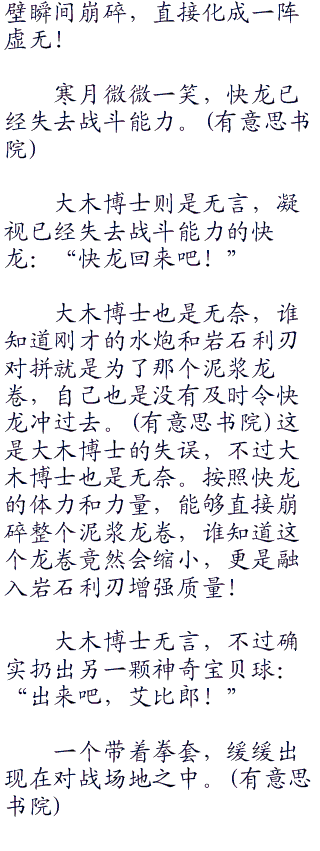 壁瞬间崩碎，直接化成一阵
虚无！
寒月微微一笑，快龙已
经失去战斗能力。(有意思书
院)
大木博士则是无言，凝
视已经失去战斗能力的快
龙：“快龙回来吧！”
大木博士也是无奈，谁
知道刚才的水炮和岩石利刃
对拼就是为了那个泥浆龙
卷，自己也是没有及时令快
龙冲过去。(有意思书院)这
是大木博士的失误，不过大
木博士也是无奈。按照快龙
的体力和力量，能够直接崩
碎整个泥浆龙卷，谁知道这
个龙卷竟然会缩小，更是融
入岩石利刃增强质量！
大木博士无言，不过确
实扔出另一颗神奇宝贝球：
“出来吧，艾比郎！”
一个带着拳套，缓缓出
现在对战场地之中。(有意思
书院)